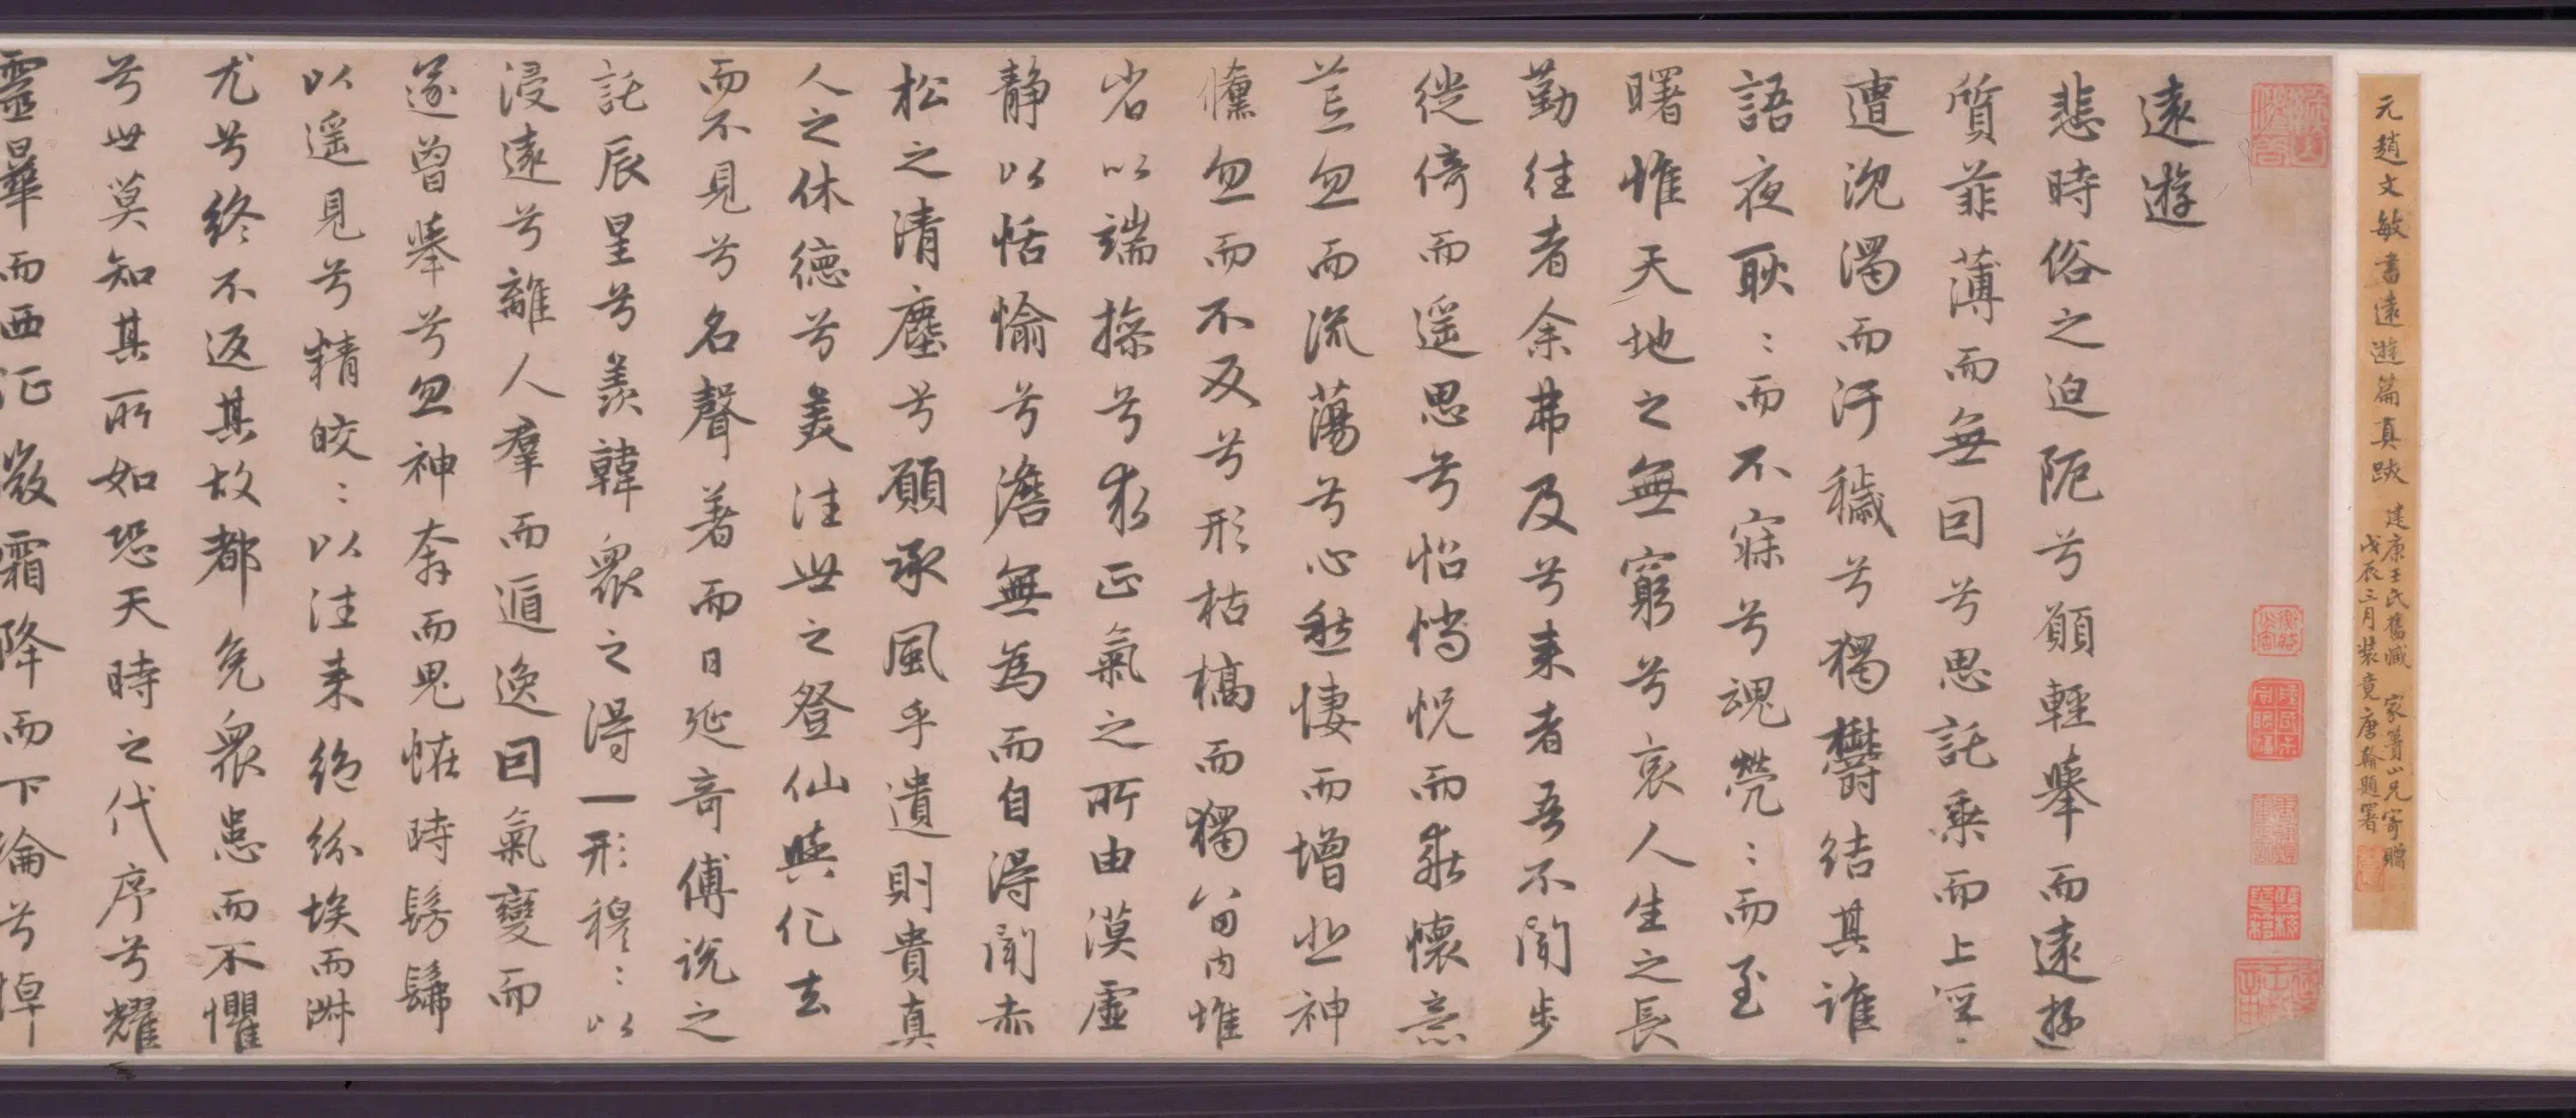 元趙文敏書遠遊篇真跡
建康王氏舊藏 家蕢山兄寄贈
戊辰三月裝竟唐翰題署
遠遊
悲時俗之迫阨兮願輕舉而遠遊
質菲薄而無因兮思託乘而上浮
遭沈濁而汙穢兮獨鬱結其誰
語夜耿〻而不寐兮魂煢〻而至
曙惟天地之無窮兮哀人生之長
勤往者余弗及兮来者吾不聞步
徙倚而遥思兮怊惝怳而乖懷意
荒忽而流蕩兮心愁悽而增悲神
儵忽而不反兮形枯槁而獨留内惟
省以端操兮求正氣之所由漠虛
靜以恬愉兮澹無為而自得聞赤
松之清塵兮願承風乎遺則貴真
人之休德兮羙往世之登仙與化去
而不見兮名聲著而日延奇傅説之
託辰星兮羨韓衆之得一形穆〻以
浸遠兮離人羣而遁逸因氣變而
遂曾舉兮忽神奔而鬼怪時髣髴
以遥見兮精皎〻以往来絶紛埃而淑
尤兮終不返其故都免衆患而不懼
兮世莫知其所如恐天時之代序兮耀
靈曅而西征微霜降而下淪兮悼